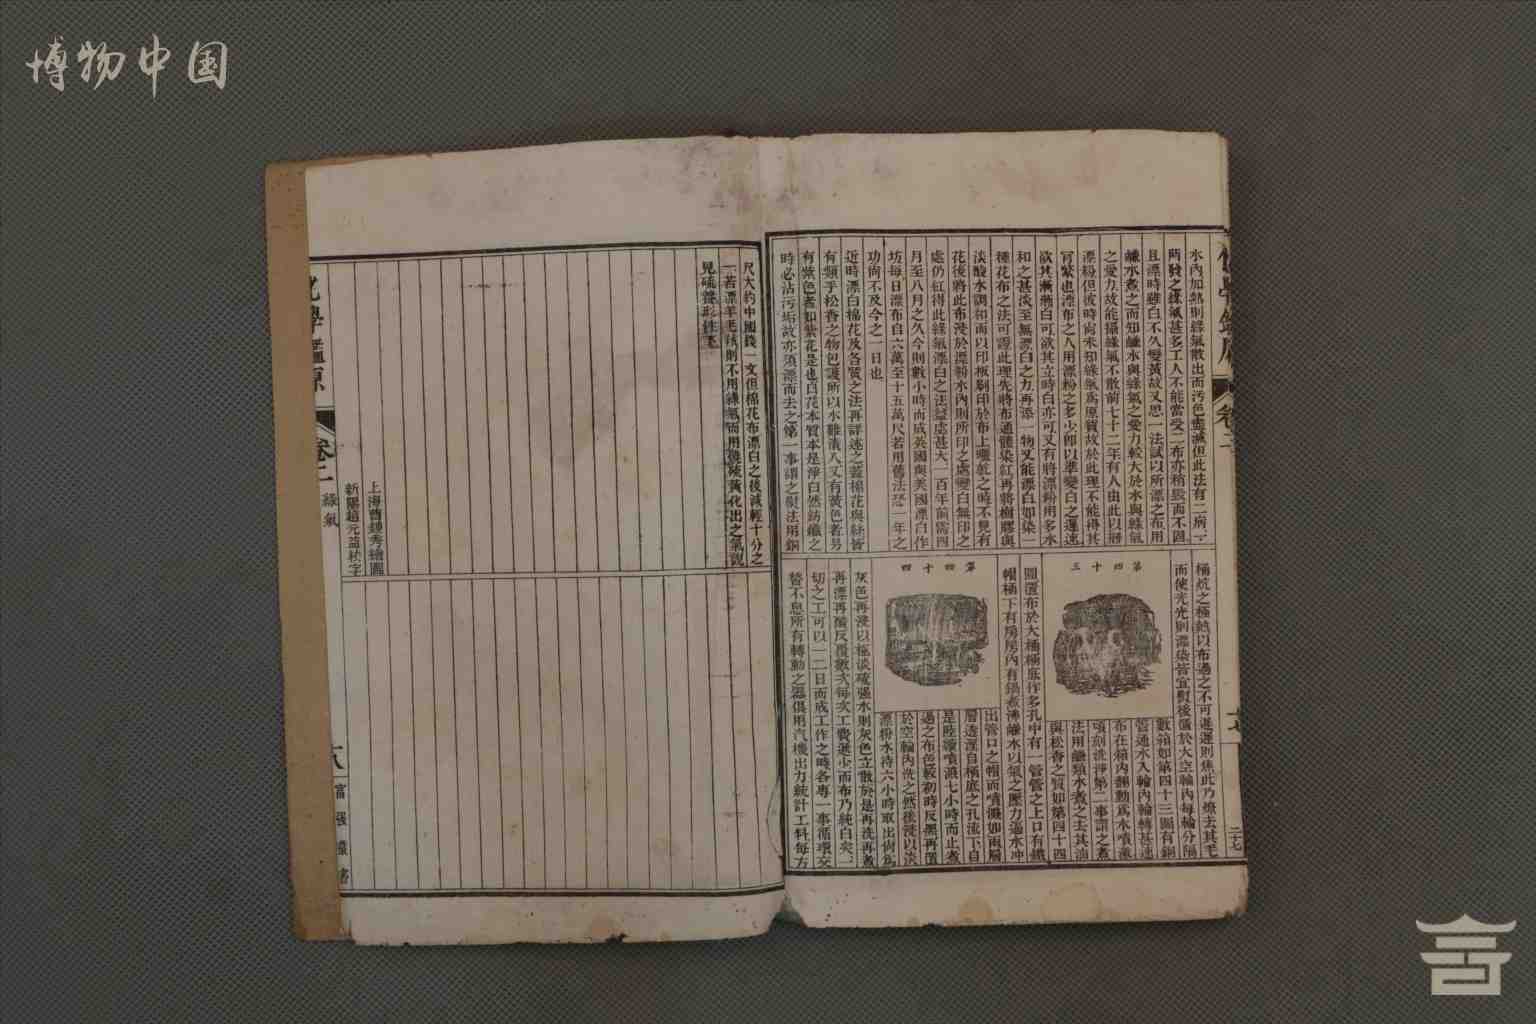 博物中国
水內加熱則綠氣散出而污色盡滅但此法有二病一
時發之綠氣甚多工人不能當受二布亦稍毀而不固
且漂時雖白不久變黃故又思一法試以所漂之布用
鹻水煮之而知鹻水與綠氣之愛力較大於水與綠氣
之愛力故能攝綠氣不散前七十二年有人由此以得
漂粉但彼時尚未知綠氣為原質故於此理不能得其
實據也漂布之人用漂粉之多少卽以準變白之遲速
欲其漸漸白可欲其立時白亦可又有將漂粉用多水
和之甚淡至無漂白之力再添一物又能漂白如染一
種花布之法可證此理先將布通體染紅再將樹膠與
淡酸水調和而以印板刷印於布上曬乾之時不見有
花後將此布浸於漂粉水內則所印之處變白無印之
處仍紅得此綠氣漂白之法益處甚大一百年前需四
月至八月之久今則數小時而成英國與美國漂白作
坊每日漂布自六萬至十五萬尺若用舊法恐一年之
功尚不及今之一日也
近時漂白棉花及各質之法再詳述之蓋棉花與絲皆
有類乎松香之物包護所以水難漬入又有黃色者另
有紫色者如紫花是也白花本質本是淨白然紡織之
時必沾污垢故亦須漂而去之第一事謂之熨法用銅
桶烘之極熱以布過之不可遲遲則焦此乃燎去其毛
而使光光則漂染皆宜熨後儀於大空輪內每輪分隔
第四十三
數箱如第四十三圖有銅
管通水入輪內輪轉甚速
布在箱內翻動為水噴激
頃刻洗淨第二事謂之煮
法用鹻類水煮之去其油
與松香之質如第四十四
圖置布於大桶桶底作多孔中有一管管之上口有鐵
帽桶下有房房內有鍋煮沸鹻水以氣之壓力逼水冲
第四十四
出管口之帽而噴濺如雨層
層透漂自桶底之孔流下自
是陸續噴濺七小時而止煮
過之布色較初時反黑再置
於空輪內洗之然後浸以淡
漂粉水待六小時取出尚為
灰色再浸以極淡硫强水則灰色立散於是再洗再煮
再漂再酸反覆數次每次工費遞少而布乃純白矣一
切之工可以一二日而成工作之時各專一事循環交
替不息所有轉動之器俱用汽機出力統計工料每方
卷二
十七
二十七
尺大約中國錢一文但棉花布漂白之後減輕十分之
一若漂羊毛絨則不用綠氣而用燒硫黃化出之氣說
見硫養形性更
上海曹鍾秀繪圖
新陽趙元益校字
化學鑑原
卷二
綠氣
十八
富强叢書